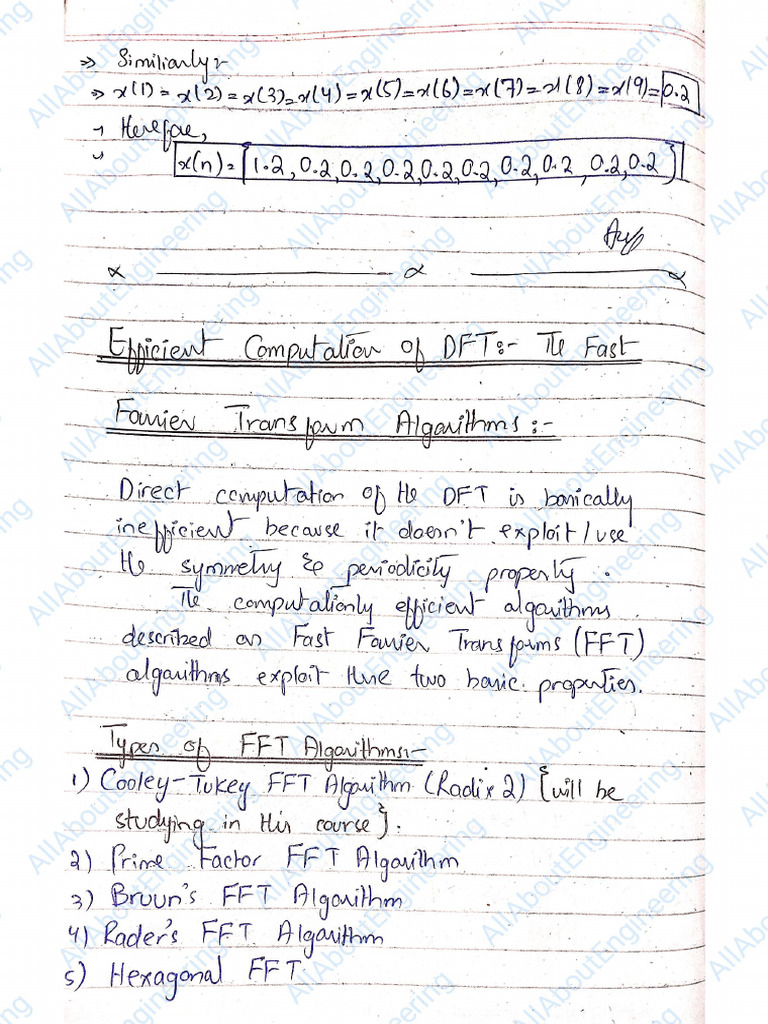 ⇒ Similianly:-
⇒ x(1) = x(2) = x(3) = x(4) = x(5) = x(6) = x(7) = x(8) = x(9) = 0.2
→ Herefore,
x(n) = {1.2, 0.2, 0.2, 0.2, 0.2, 0.2, 0.2, 0.2, 0.2, 0.2}
Efficient Computation of DFT:- The Fast
Fourier Transform Algorithms:-
Direct computation of the DFT is basically
inefficient because it doesn't exploit/use
the symmetry & periodicity property.
The computationly efficient algorithms
described as Fast Fourier Transforms (FFT)
algorithms exploit these two basic properties.
Types of FFT Algorithms:-
1) Cooley-Tukey FFT Algorithm (Radix 2) {will be
studying in this course}.
2) Prime Factor FFT Algorithm
3) Bruun's FFT Algorithm
4) Rader's FFT Algorithm
5) Hexagonal FFT
AllAboutEngineering